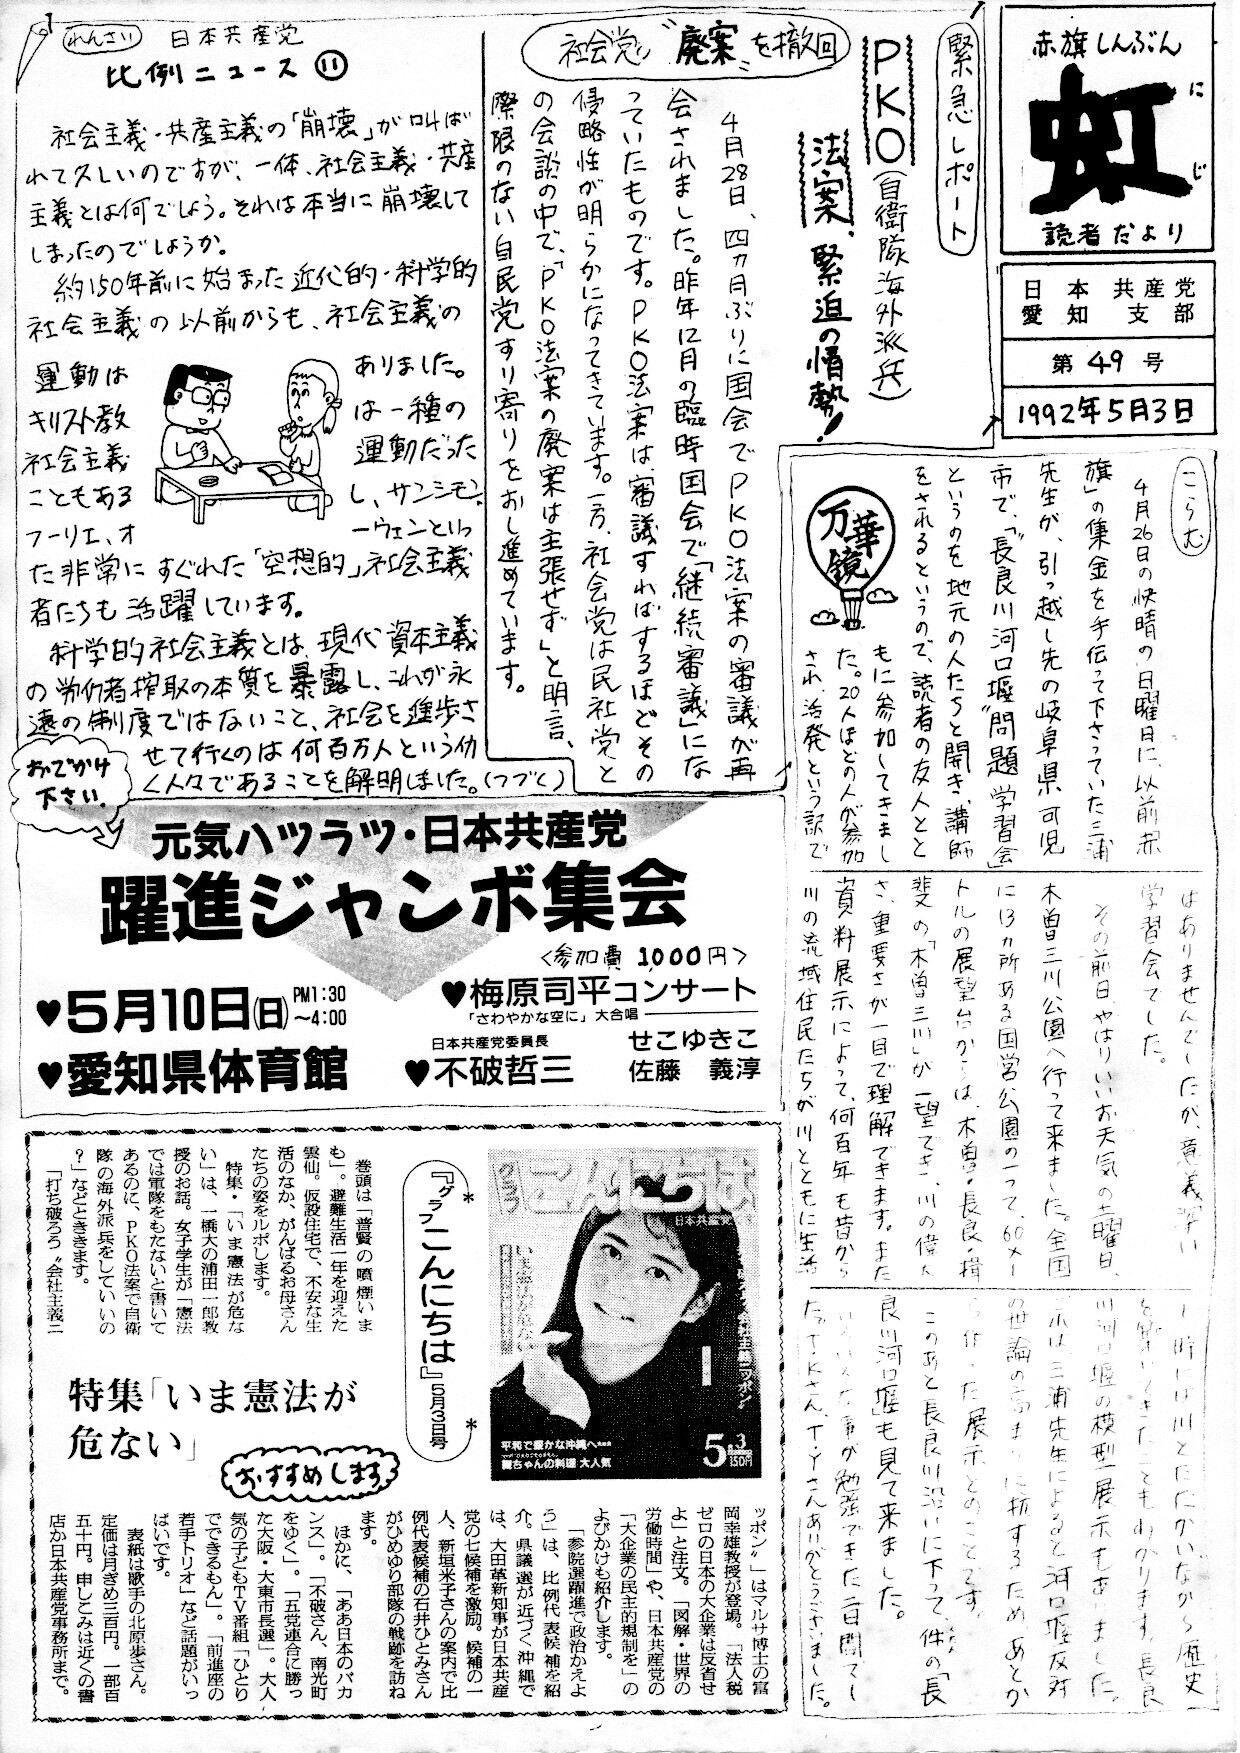 赤旗しんぶん
虹
にじ
読者だより
日本共産党
愛知支部
第49号
1992年5月3日
緊急レポート
PKO(自衛隊海外派兵)
法案、緊迫の情勢!
社会党、"廃案"を撤回
4月28日、四ヵ月ぶりに国会でPKO法案の審議が再
会されました。昨年12月の臨時国会で「継続審議」にな
っていたものです。PKO法案は、審議すればするほどその
侵略性が明らかになってきています。一方、社会党は民社党と
の会談の中で、「PKO法案の廃案は主張せず」と明言、
際限のない自民党すり寄りをおし進めています。
れんさい
日本共産党
比例ニュース⑪
社会主義・共産主義の「崩壊」が叫ば
れて久しいのですが、一体、社会主義・共産
主義とは何でしょう。それは本当に崩壊して
しまったのでしょうか。
約150年前に始まった近代的・科学的
社会主義の以前からも、社会主義の
運動は
ありました。
キリスト教
は一種の
社会主義
運動だった
こともある
し、サンシモン、
フーリエ、オ
ーウェンといっ
た非常にすぐれた「空想的」社会主義
者たちも活躍しています。
科学的社会主義とは、現代資本主義
の労働者搾取の本質を暴露し、これが永
遠の制度ではないこと、社会を進歩さ
せて行くのは何百万人という働
く人々であることを解明しました。(つづく)
おでかけ
下さい.
元気ハツラツ・日本共産党
躍進ジャンボ集会
<参加費 1,000円>
♥5月10日(日)
PM1:30
~4:00
♥愛知県体育館
♥梅原司平コンサート
「さわやかな空に」大合唱
日本共産党委員長
♥不破哲三
せこゆきこ
佐藤 義淳
こらむ
万華鏡
4月26日の快晴の日曜日に、以前赤
旗」の集金を手伝って下さっていた三浦
先生が、引っ越し先の岐阜県可児
市で、「"長良川河口堰"問題学習会」
というのを地元の人たちと開き、講師
をされるというので、読者の友人とと
もに参加してきまし
た。20人ほどの人が参加
され、活発という訳で
はありませんでしたが、意義深い
学習会でした。
その前日、やはりいいお天気の土曜日、
木曽三川公園へ行って来ました。全国
に13ヵ所ある国営公園の一つで、60メー
トルの展望台からは、木曽・長良・揖
斐の「木曽三川」が一望でき、川の偉大
さ、重要さが一目で理解できます。また
資料展示によって、何百年も昔から
川の流域住民たちが川とともに生活
し、時には川とたたかいながら歴史
を築いてきたこともわかります。長良
川河口堰の模型展示もありました。
これは三浦先生によると河口堰反対
の世論の高まりに抗するため、あとか
ら作った展示とのことです。
このあと長良川沿いに下って、件の「長
良川河口堰」も見て来ました。
いろいろな事が勉強できた二日間でし
た。T・Kさん、T・Yさんありがとうございました。
『グラフこんにちは』5月3日号
グラフ
こんにちは
日本共産党
いま憲法が危ない
平和で豊かな沖縄へ
蘭ちゃんの料理 大人気
5.3
350円
巻頭は「普賢の噴煙いま
も」。避難生活一年を迎えた
雲仙。仮設住宅で、不安な生
活のなか、がんばるお母さん
たちの姿をルポします。
特集・「いま憲法が危な
い」は、一橋大の浦田一郎教
授のお話。女子学生が「憲法
では軍隊をもたないと書いて
あるのに、PKO法案で自衛
隊の海外派兵をしていいの
?」などとききます。
「打ち破ろう"会社主義ニ
特集「いま憲法が
危ない」
おすすめします
ッポン"」はマルサ博士の富
岡幸雄教授が登場。「法人税
ゼロの日本の大企業は反省せ
よ」と注文。「図解・世界の
労働時間」や、日本共産党の
「大企業の民主的規制を」の
よびかけも紹介します。
「参院選躍進で政治かえよ
う」は、比例代表候補を紹
介。県議選が近づく沖縄で
は、大田革新知事が日本共産
党の七候補を激励。候補の一
人、新垣米子さんの案内で比
例代表候補の石井ひとみさん
がひめゆり部隊の戦跡を訪ね
ます。
ほかに、「ああ日本のバカ
ンス」。「不破さん、南光町
をゆく」。「五党連合に勝っ
た大阪・大東市長選」。大人
気の子どもTV番組「ひとり
でできるもん」。「前進座の
若手トリオ」など話題がいっ
ぱいです。
表紙は歌手の北原歩さん。
定価は月ぎめ三百円。一部百
五十円。申しこみは近くの書
店か日本共産党事務所まで。